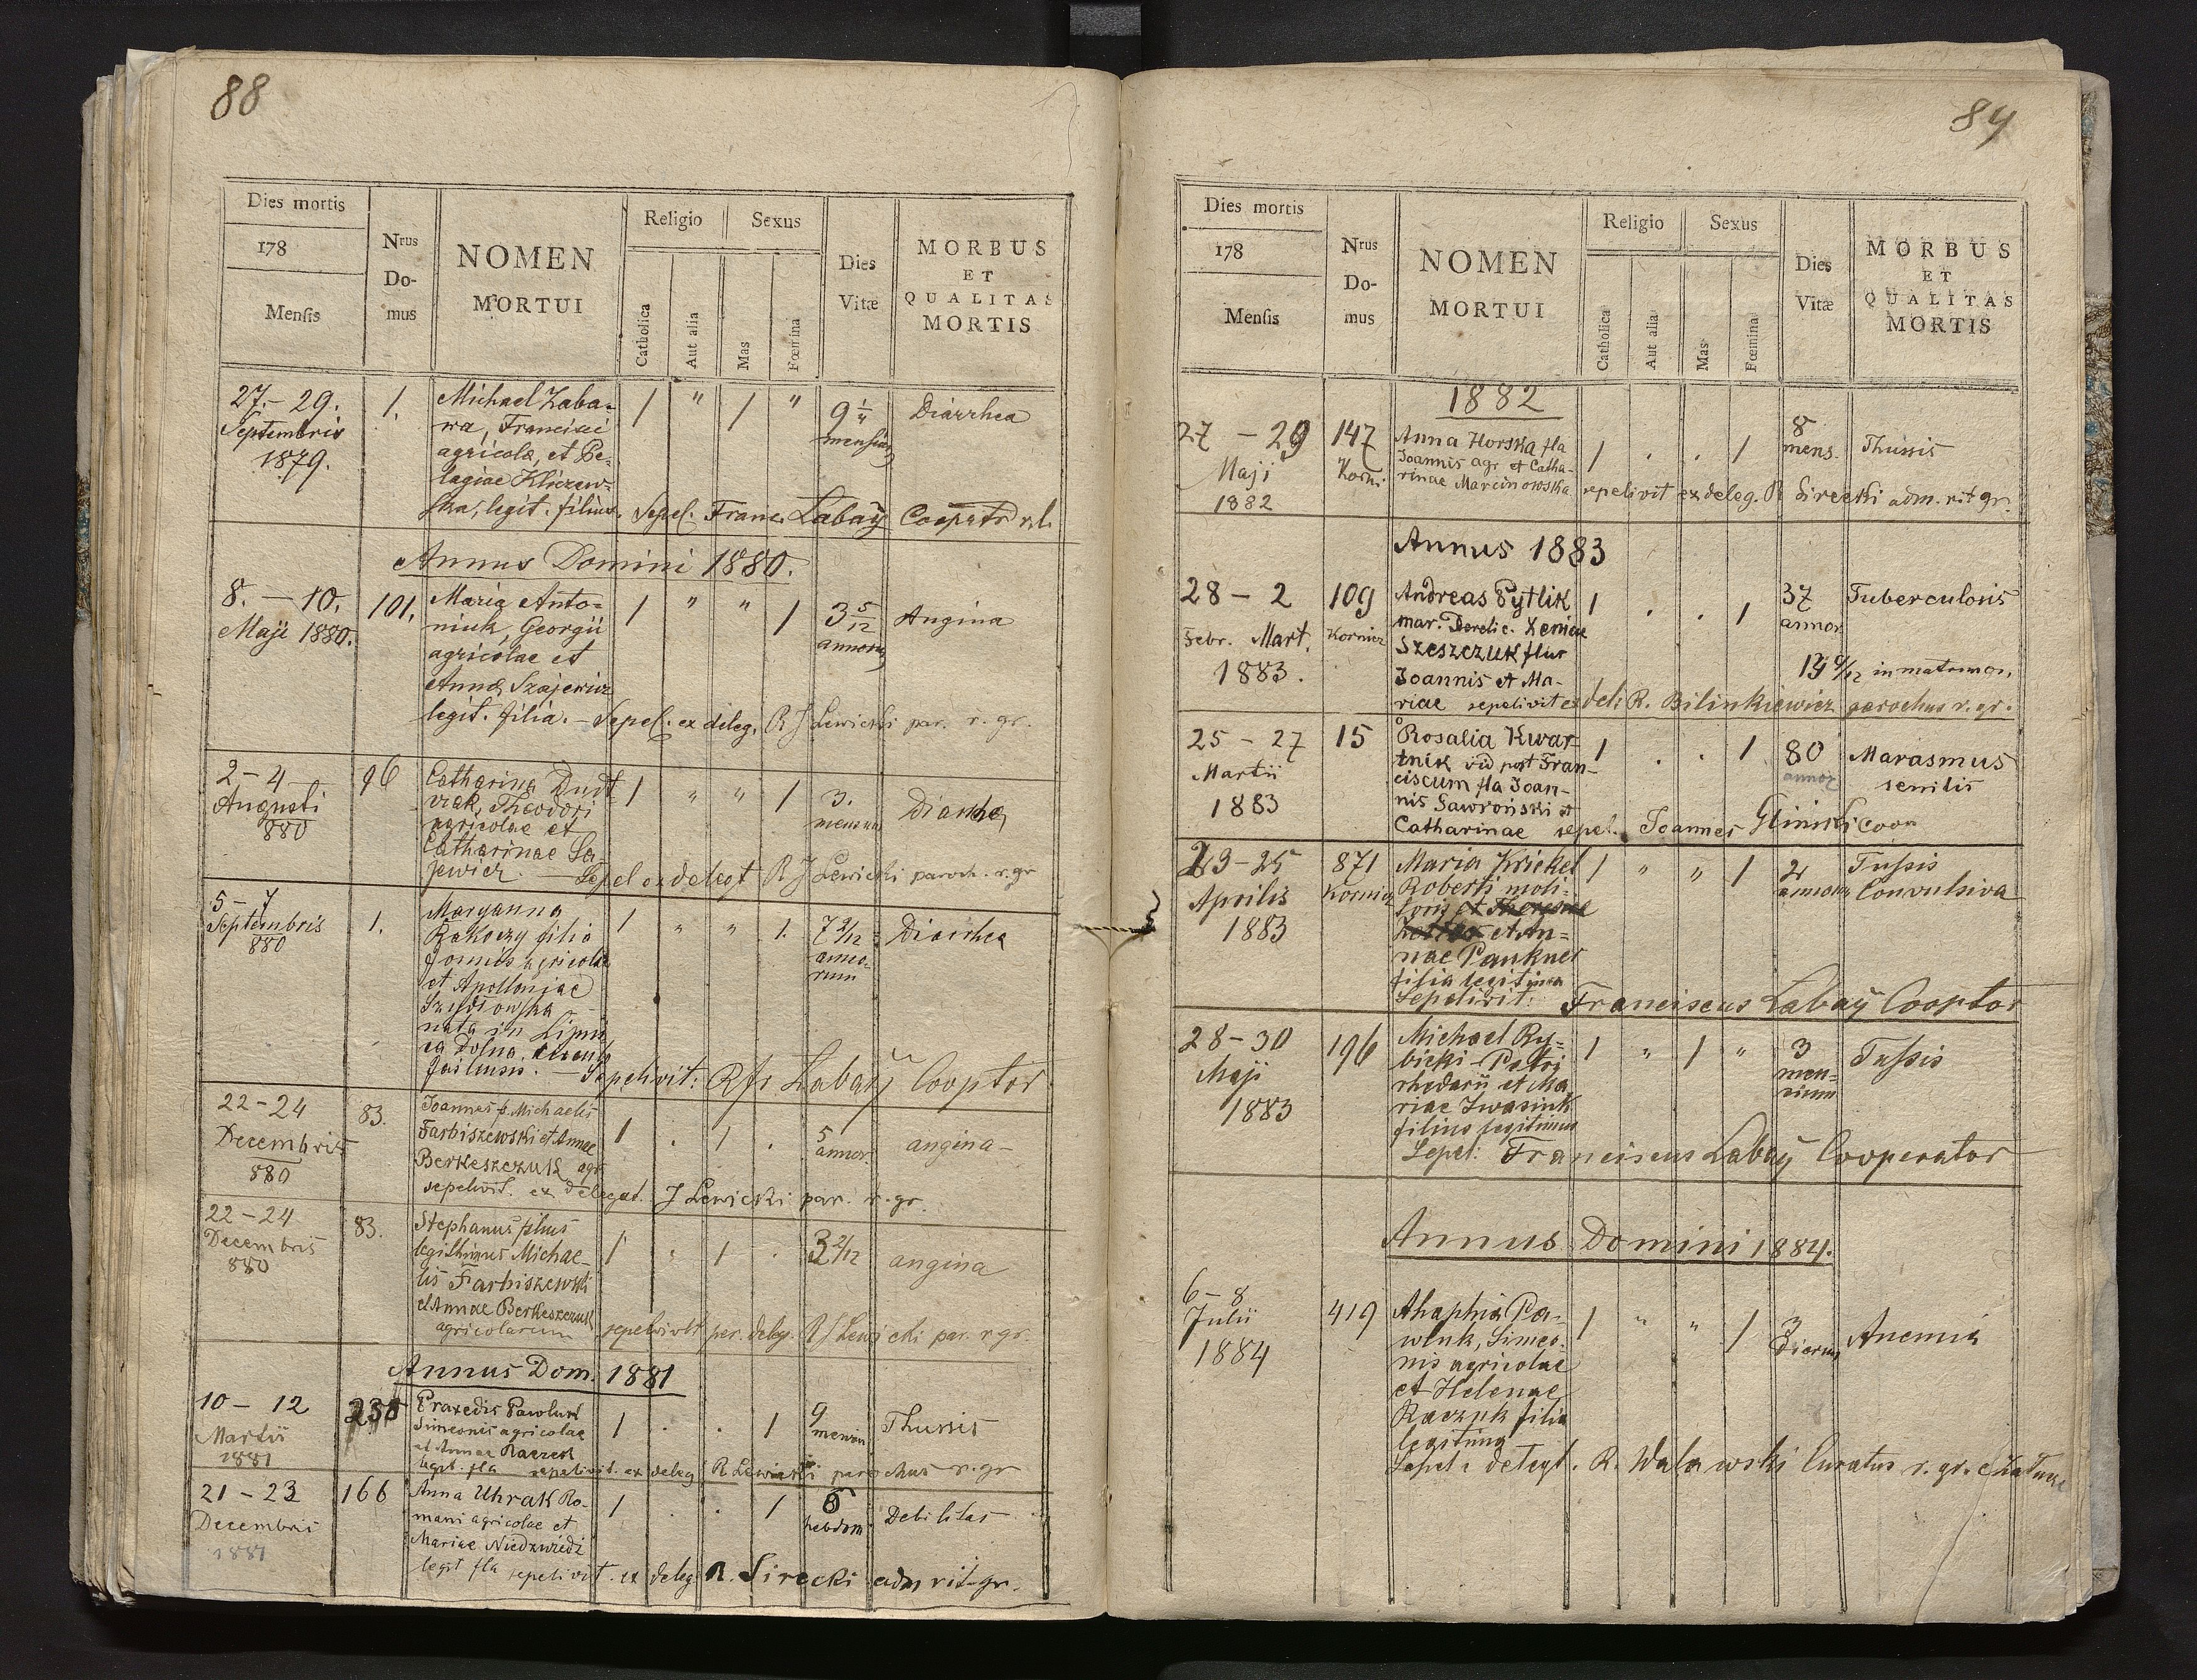 88
Dies mortis
178
Mensis
Nrus
Do-
mus
NOMEN
MORTUI
Religio
Catholica
Aut alia
Sexus
Mas
Fœmina
Dies
Vitæ
MORBUS
ET
QUALITAS
MORTIS
27.- 29. 1. Michael Zaba- 1 " 1 " 9 Diarrhea
Septembris wa, Francisci mensium
1879. agricola, et Pe-
lagiae Kliczew-
ska, legit. filius. Sepel. Franc. Labaÿ
Annus Domini 1880.
8. - 10. 101. Maria Anto- 1 " " 1 3 5/12 Angina
Maji 1880. niuk, Georgii annorum
agricolae et
Anna Szajewicz
legit. filia. - Sepel. ex deleg. R J Lewicki par. r. gr.
2-4 96 Catharina 1 " " 1 3. Diarrhea
Augusti Theodori mensium
880 agricolae et
Catharinae Sa-
jewicz. - Sepel ex delegt R J Lewicki paroch. r. gr
5-7 1. Maryanna 1 " " 1. 7 Diarrhea
Septembris Rakoczy filia anno-
880 agricolae rum
et Apolloniae
nata in Lipni
ca Dolna
- Sepelivit: Labaÿ Cooptor
22-24 83. Joannes f. Michaelis 1 . 1 . 5 angina-
Decembris Farbiszewski et Annae annor.
880 Berkeszczuk agr.
sepelivit. ex delegat. J Lewicki par. r. gr.
22-24 83. Stephanus filius 1 . 1 . 3 2/12 angina
Decembris legithimus Michae-
880 lis Farbiszewski
et Annae Berkeszczuk
agricolarum sepelivit per. deleg. R J Lewicki par. r gr.
Annus Dom. 1881
10 - 12 Praxedis Pawluk 1 . . 1 9 Thussis
Martii Simeonis agricolae mensiu
1881 et Annae Raczek
legit. fla sepelivit. ex deleg R Lewicki parochus r. gr
21-23 166 Anna Uhrak Ro- 1 . . 1 Debilitas
Decembris mani agricolae et hebdom
1881 Mariae Niedzwiedz
legit fla sepelivit. ex deleg. R. Sirecki adm rit-gr.
84
Dies mortis
178
Mensis
Nrus
Do-
mus
NOMEN
MORTUI
Religio
Catholica
Aut alia
Sexus
Mas
Fœmina
Dies
Vitæ
MORBUS
ET
QUALITAS
MORTIS
1882
27 - 29 147 Anna Horska fla 1 . . 1 8 Thussis
Maji Joannis agr et Catha- mens.
1882 rinae Marcinowska sepelivit ex deleg. R Sirecki adm. rit gr.
Annus 1883
28 - 2 109 Andreas Pytlik 1 . . 1 37 Tuberculosis
Febr. Mart. Kornicz mar. Derelic. Xeniae annor
1883. Szeszczuk flus
Joannis et Ma-
riae sepelivit ex del: R. Bilinkiewicz parochus r. gr.
25 - 27 15 Rosalia Kwar- 1 . . 1 80 Marasmus
Martii tnik vid post Fran- annor senilis
1883 ciscum fla Joan-
nis Sawroński et
Catharinae sepel. Joannes Gliński Coop
23-25 871 Maria Krickel 1 " " 1 2 Tussis
Aprilis Kornicz Roberti moli- annorum Convulsiva
1883 toris et Theresae
et An-
nae Paukner
filia legitima
Sepelivit: Franciscus Labaÿ Cooptor
28-30 196 Michael Ry- 1 " 1 " 3 Tussis
Maji bicki Petri men-
1883 rhedarii et Ma sium
riae Iwasiuk
filius legitimus
Sepel: Franciscus Labaÿ Cooperator
Annus Domini 1884.
6-8 419 Ahaphia Pa- 1 " " 1 3 Anemia
Julii wluk, Simeo- dierum
1884 nis agricolae
et Helenae
Raczuk filia
legitima
Sepel: delegt. R. Walawski Curatus r. gr.